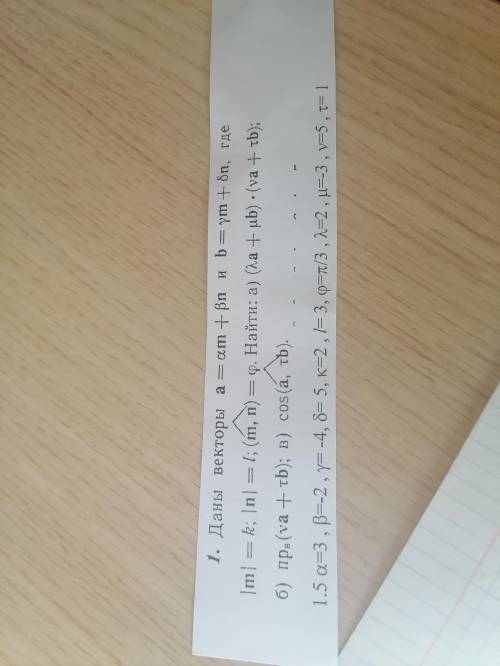 1. Даны векторы a = αm + βn и b = γm + δn, где
|m| = k; |n| = l; (m, n) = φ. Найти: а) (λa + μb) · (νa + τb);
б) пр_в (νa + τb); в) cos(a, τb).
1.5 α=3 , β=-2 , γ= -4, δ= 5, κ=2 , l= 3, φ=π/3 , λ=2 , μ=-3 , ν=5 , τ= 1